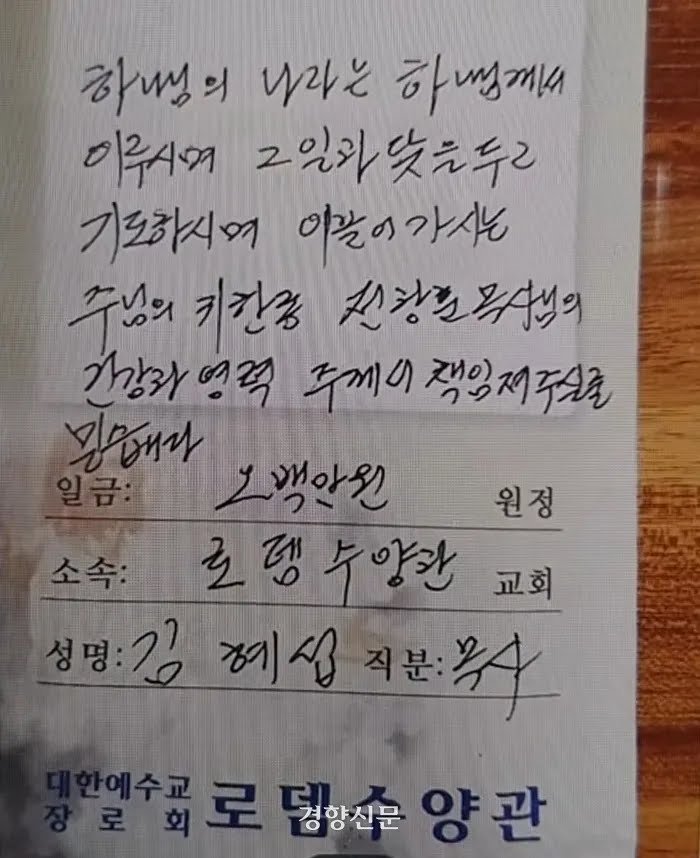 하나님의 나라는 하나님께서
이루시며 그 일과 낮을 두고
기도하시며 이끌어가시는
주님의 귀한종 전창훈 목사님의
건강과 영력 주께서 책임져주실줄
믿습니다
일금: 오백만원 원정
소속: 로뎀수양관 교회
성명: 김혜섭 직분: 목사
대한예수교
장로회 로뎀수양관
경향신문